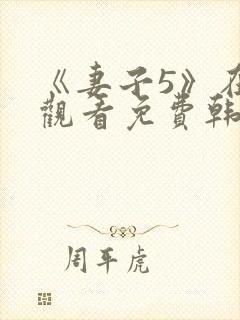 《妻子5》在
觀看免費韓
周平虎